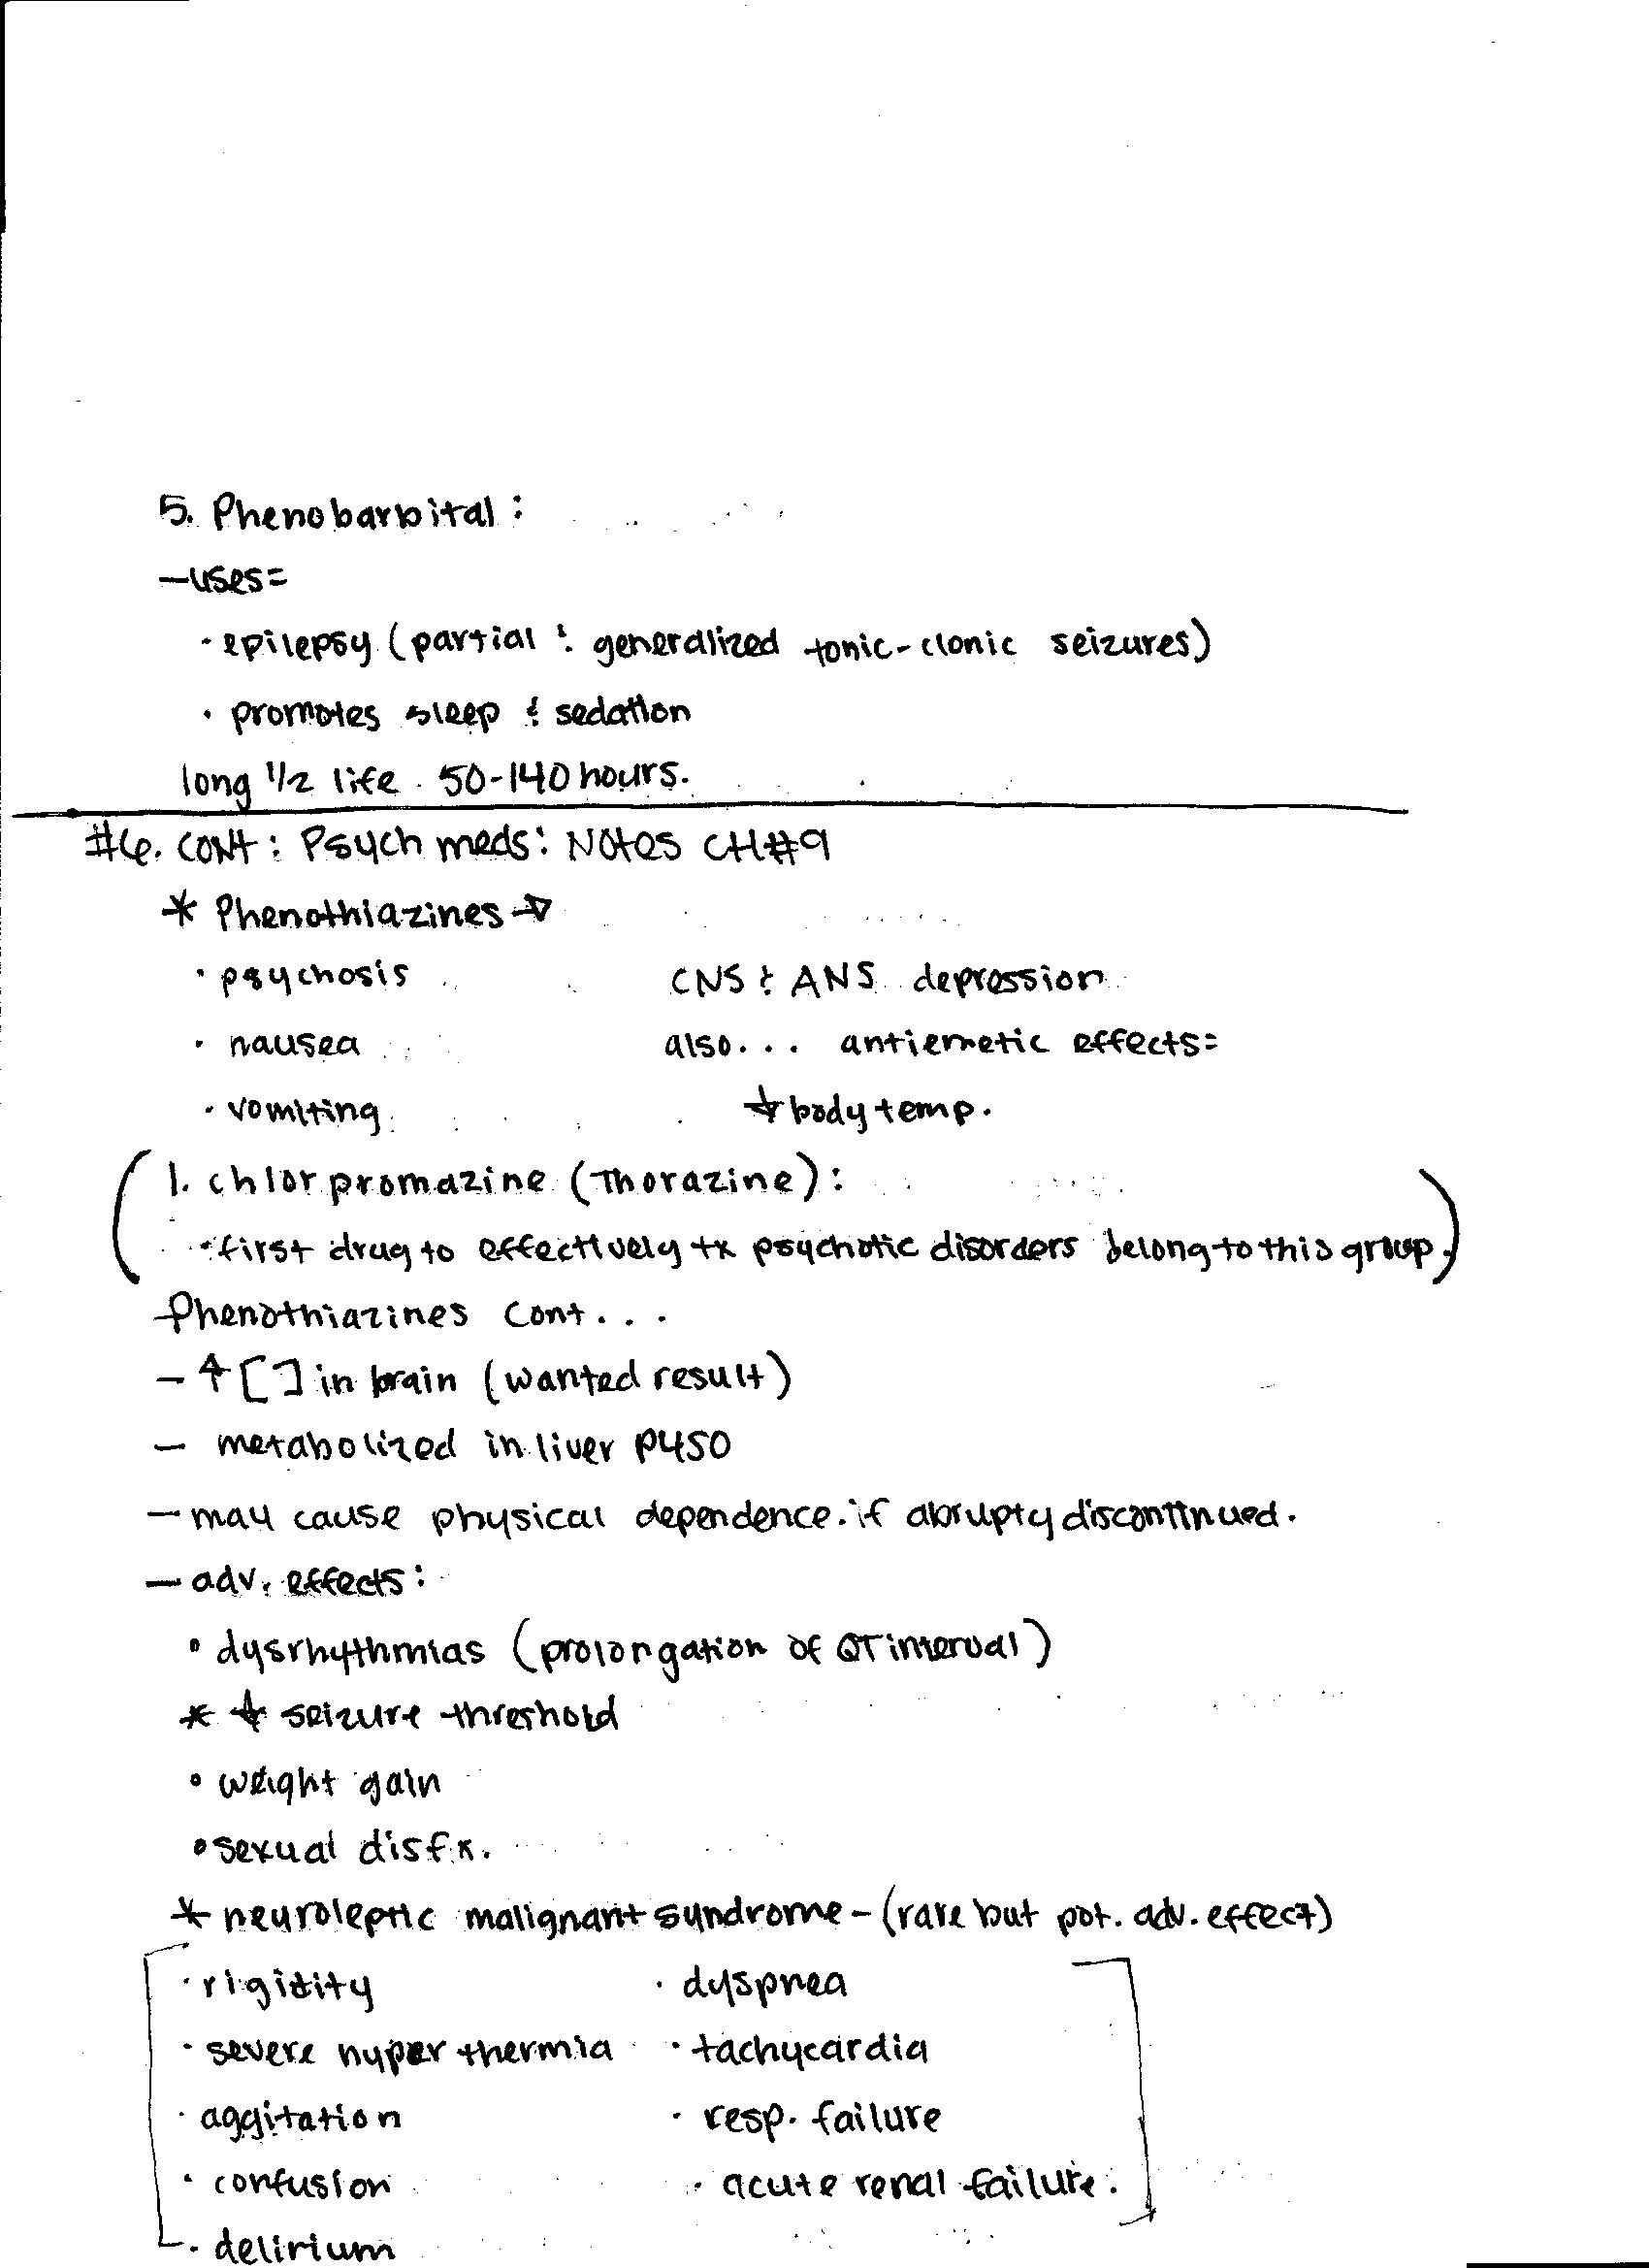 5. Phenobarbital:
—uses=
· epilepsy (partial & generalized tonic-clonic seizures)
· promotes sleep & sedation
long 1/2 life. 50-140 hours.
#6. CONT: Psych meds: Notes CH#9
* Phenothiazines →
· psychosis CNS & ANS depression
· nausea also... antiemetic effects=
· vomiting ↓ body temp.
(1. chlorpromazine (Thorazine):
· first drug to effectively tx psychotic disorders belong to this group.)
Phenothiazines cont...
– ↑ [ ] in brain (wanted result)
– metabolized in liver P450
– may cause physical dependence. if abrupty discontinued.
– adv. effects:
° dysrhythmias (prolongation of QT interval)
* ↓ seizure threshold
° weight gain
° sexual disfx.
* neuroleptic malignant syndrome – (rare but pot. adv. effect)
· rigidity · dyspnea
· severe hyperthermia · tachycardia
· aggitation · resp. failure
· confusion · acute renal failure.
· delirium